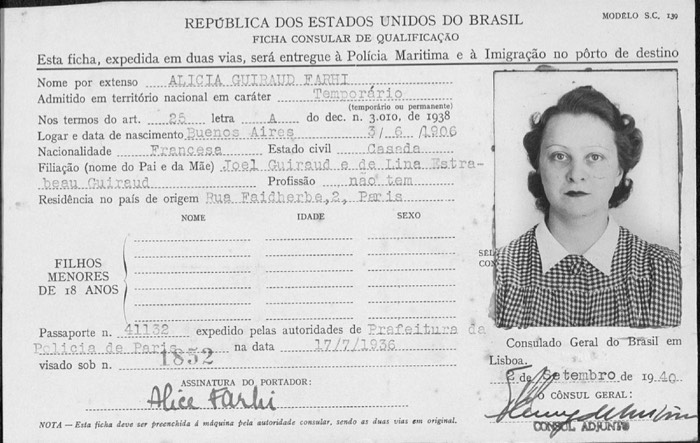 REPÚBLICA DOS ESTADOS UNIDOS DO BRASIL
MODÊLO S.C. 139
FICHA CONSULAR DE QUALIFICAÇÃO
Esta ficha, expedida em duas vias, será entregue à Polícia Maritima e à Imigração no pôrto de destino
Nome por extenso ALICIA GUIRAUD FARHI
Admitido em território nacional em caráter Temporário
(temporário ou permanente)
Nos termos do art. 25 letra A do dec. n. 3.010, de 1938
Logar e data de nascimento Buenos Aires 3/6/1906
Nacionalidade Francesa Estado civil Casada
Filiação (nome do Pai e da Mãe) Joel Guiraud e de Lina Estra-
beau Guiraud Profissão não tem
Residência no país de origem Rua Faidherbe,2, Paris
NOME IDADE SEXO
FILHOS
MENORES
DE 18 ANOS
Passaporte n. 41132 expedido pelas autoridades de Prefeitura da
Policia de Paris na data 17/7/1936
visado sob n. 1832
ASSINATURA DO PORTADOR:
Alice Farhi
NOTA — Esta ficha deve ser preenchida á máquina pela autoridade consular, sendo as duas vias em original.
Consulado Geral do Brasil em
Lisboa.
2 de Setembro de 1940
O CÔNSUL GERAL:
CONSUL ADJUNTO